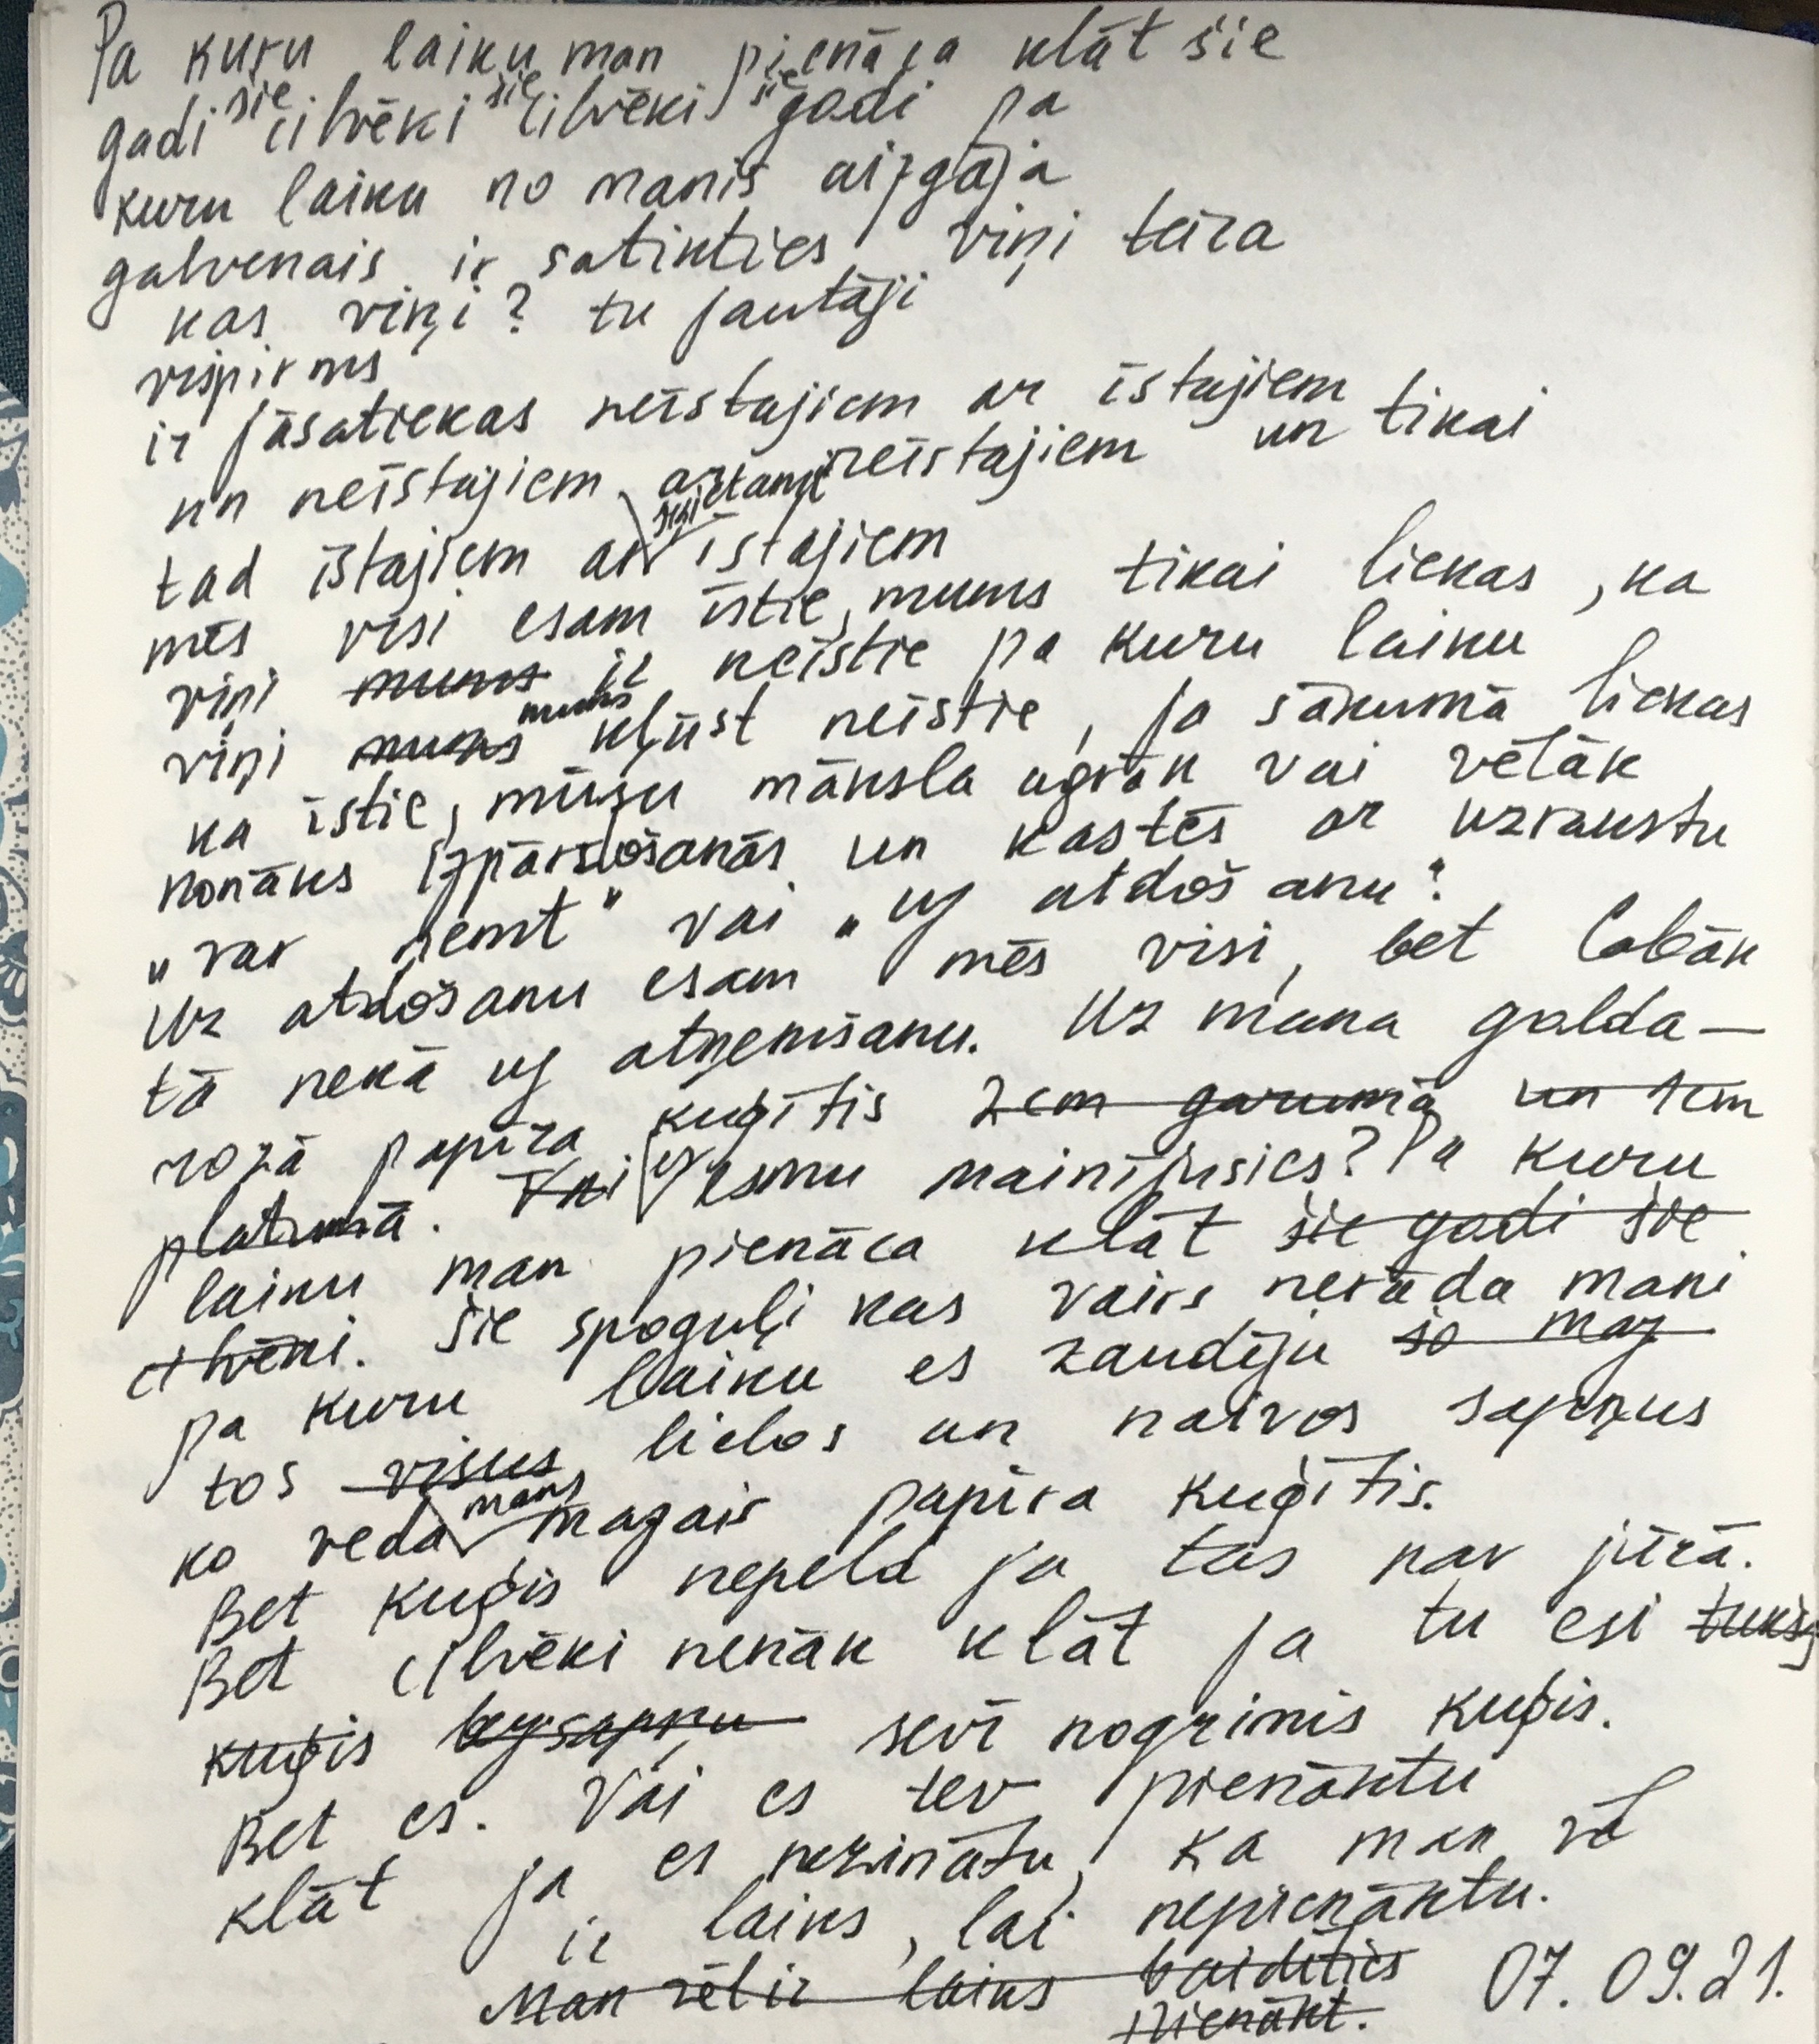 Pa kuru laiku man pienāca klāt šie
gadi šie cilvēki šie cilvēki šie gadi pa
kuru laiku no manis aizgāja
galvenais ir satikties viņi teica
kas viņi? tu jautāji
vispirms
ir jāsatiekas neīstajiem ar īstajiem
un neīstajiem ar neīstajiem un tikai
tad īstajiem ar šķietami īstajiem
mēs visi esam īstie, mums tikai liekas, ka
viņi mums ir neīstie pa kuru laiku
viņi mums mums kļūst neīstie, ja sākumā liekas
ka īstie, mūsu māksla agrāk vai vēlāk
nonāks izpārdošanās un kastēs ar uzrakstu
"var ņemt" vai "uz atdošanu".
Uz atdošanu esam mēs visi, bet labāk
tā nekā uz atņemšanu. Uz mana galda —
rozā papīra kuģītis 2cm garumā un 1cm
platumā. Vai es esmu mainījusies? Pa kuru
laiku man pienāca klāt šie gadi šie
cilvēki. Šie spoguļi kas vairs nerāda mani
pa kuru laiku es zaudēju šo maz
tos visus lielos un naivos sapņus
ko veda mans mazais papīra kuģītis.
Bet kuģis nepeld ja tas nav jūrā.
Bet cilvēki nenāk klāt ja tu esi tukšs
kuģis bez sapņu sevī nogrimis kuģis.
Bet es. Vai es tev pienāktu
klāt ja es nezinātu, ka man vēl
ir laiks, lai nepienāktu.
Man vēl ir laiks baidīties
pienākt.
07.09.21.